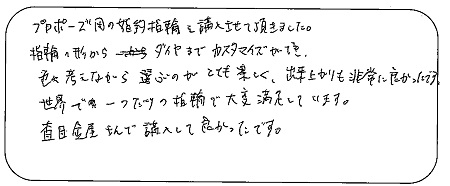 プロポーズ用の婚約指輪を購入させて頂きました。
指輪の形からダイヤまでカスタマイズができ、
色々考えながら選ぶのがとても楽しく、出来上がりも非常に良かったです。
世界で一つだけの指輪で大変満足しています。
杢目金屋さんで購入して良かったです。